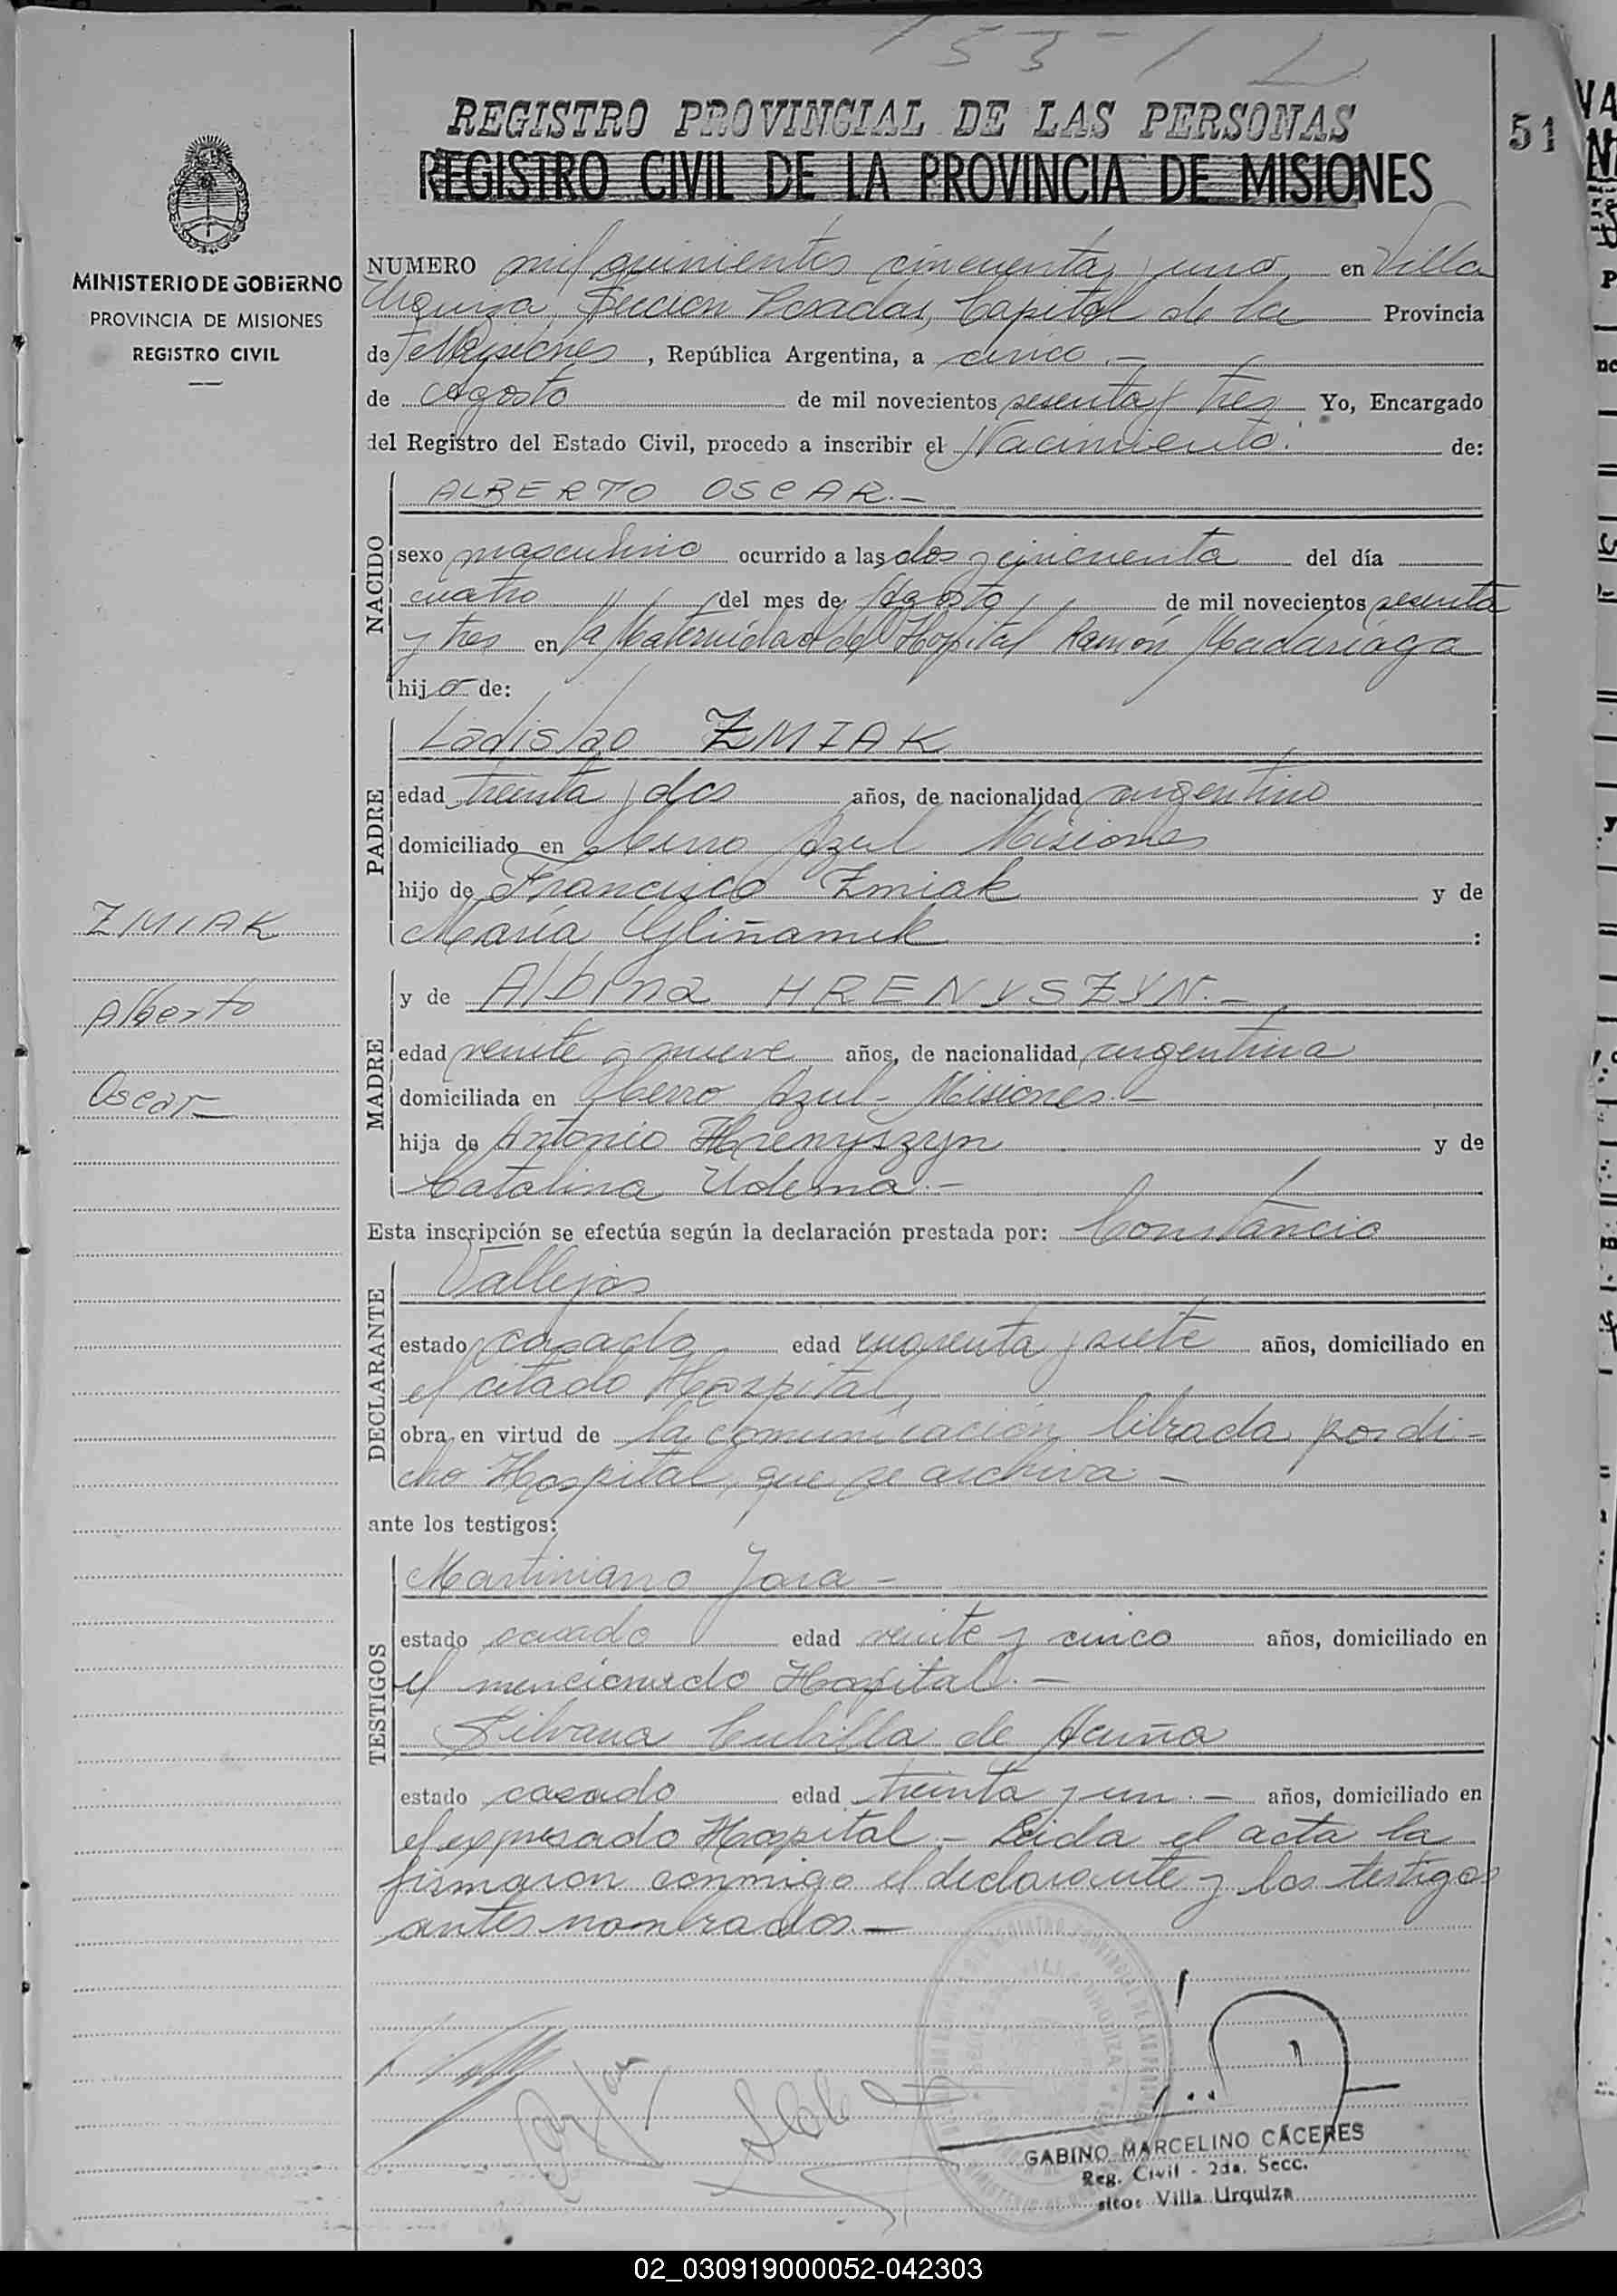 REGISTRO PROVINCIAL DE LAS PERSONAS
51
REGISTRO CIVIL DE LA PROVINCIA DE MISIONES
MINISTERIO DE GOBIERNO
PROVINCIA DE MISIONES
REGISTRO CIVIL
NUMERO mil quinientos cincuenta y uno en Villa
Urquiza, Sección Posadas, Capital de la Provincia
de Misiones, República Argentina, a cinco.-
de Agosto de mil novecientos sesenta y tres Yo, Encargado
del Registro del Estado Civil, procedo a inscribir el Nacimiento. de:
NACIDO
ALBERTO OSCAR.-
sexo masculino ocurrido a las dos y cincuenta del día
cuatro del mes de Agosto de mil novecientos sesenta
y tres en la Maternidad del Hospital Ramón Madariaga
hijo de:
PADRE
Ladislao ZMIAK
edad treinta y dos años, de nacionalidad argentino
domiciliado en Cerro Azul Misiones
hijo de Francisco Zmiak y de
María :
ZMIAK
Alberto
Oscar
MADRE
y de Albina HRENYSZYN.-
edad veinte y nueve años, de nacionalidad argentina
domiciliada en Cerro Azul- Misiones.-
hija de Antonio Hrenyszyn y de
Catalina Uderna.-
Esta inscripción se efectúa según la declaración prestada por: Constancio
DECLARANTE
Vallejos
estado casado edad cuarenta y siete años, domiciliado en
el citado Hospital,
obra en virtud de la comunicación librada por di-
cho Hospital, que se archiva.-
ante los testigos:
TESTIGOS
Martiniano Jara-
estado casado edad veinte y cinco años, domiciliado en
el mencionado Hospital.-
Silvana Cubilla de Acuña
estado casado edad treinta y un.- años, domiciliado en
el expresado Hospital.- Leida el acta la
firmaron conmigo el declarante y los testigos
antes nombrados.-
GABINO MARCELINO CÁCERES
Reg. Civil - 2da. Secc.
sito: Villa Urquiza
02_030919000052-042303